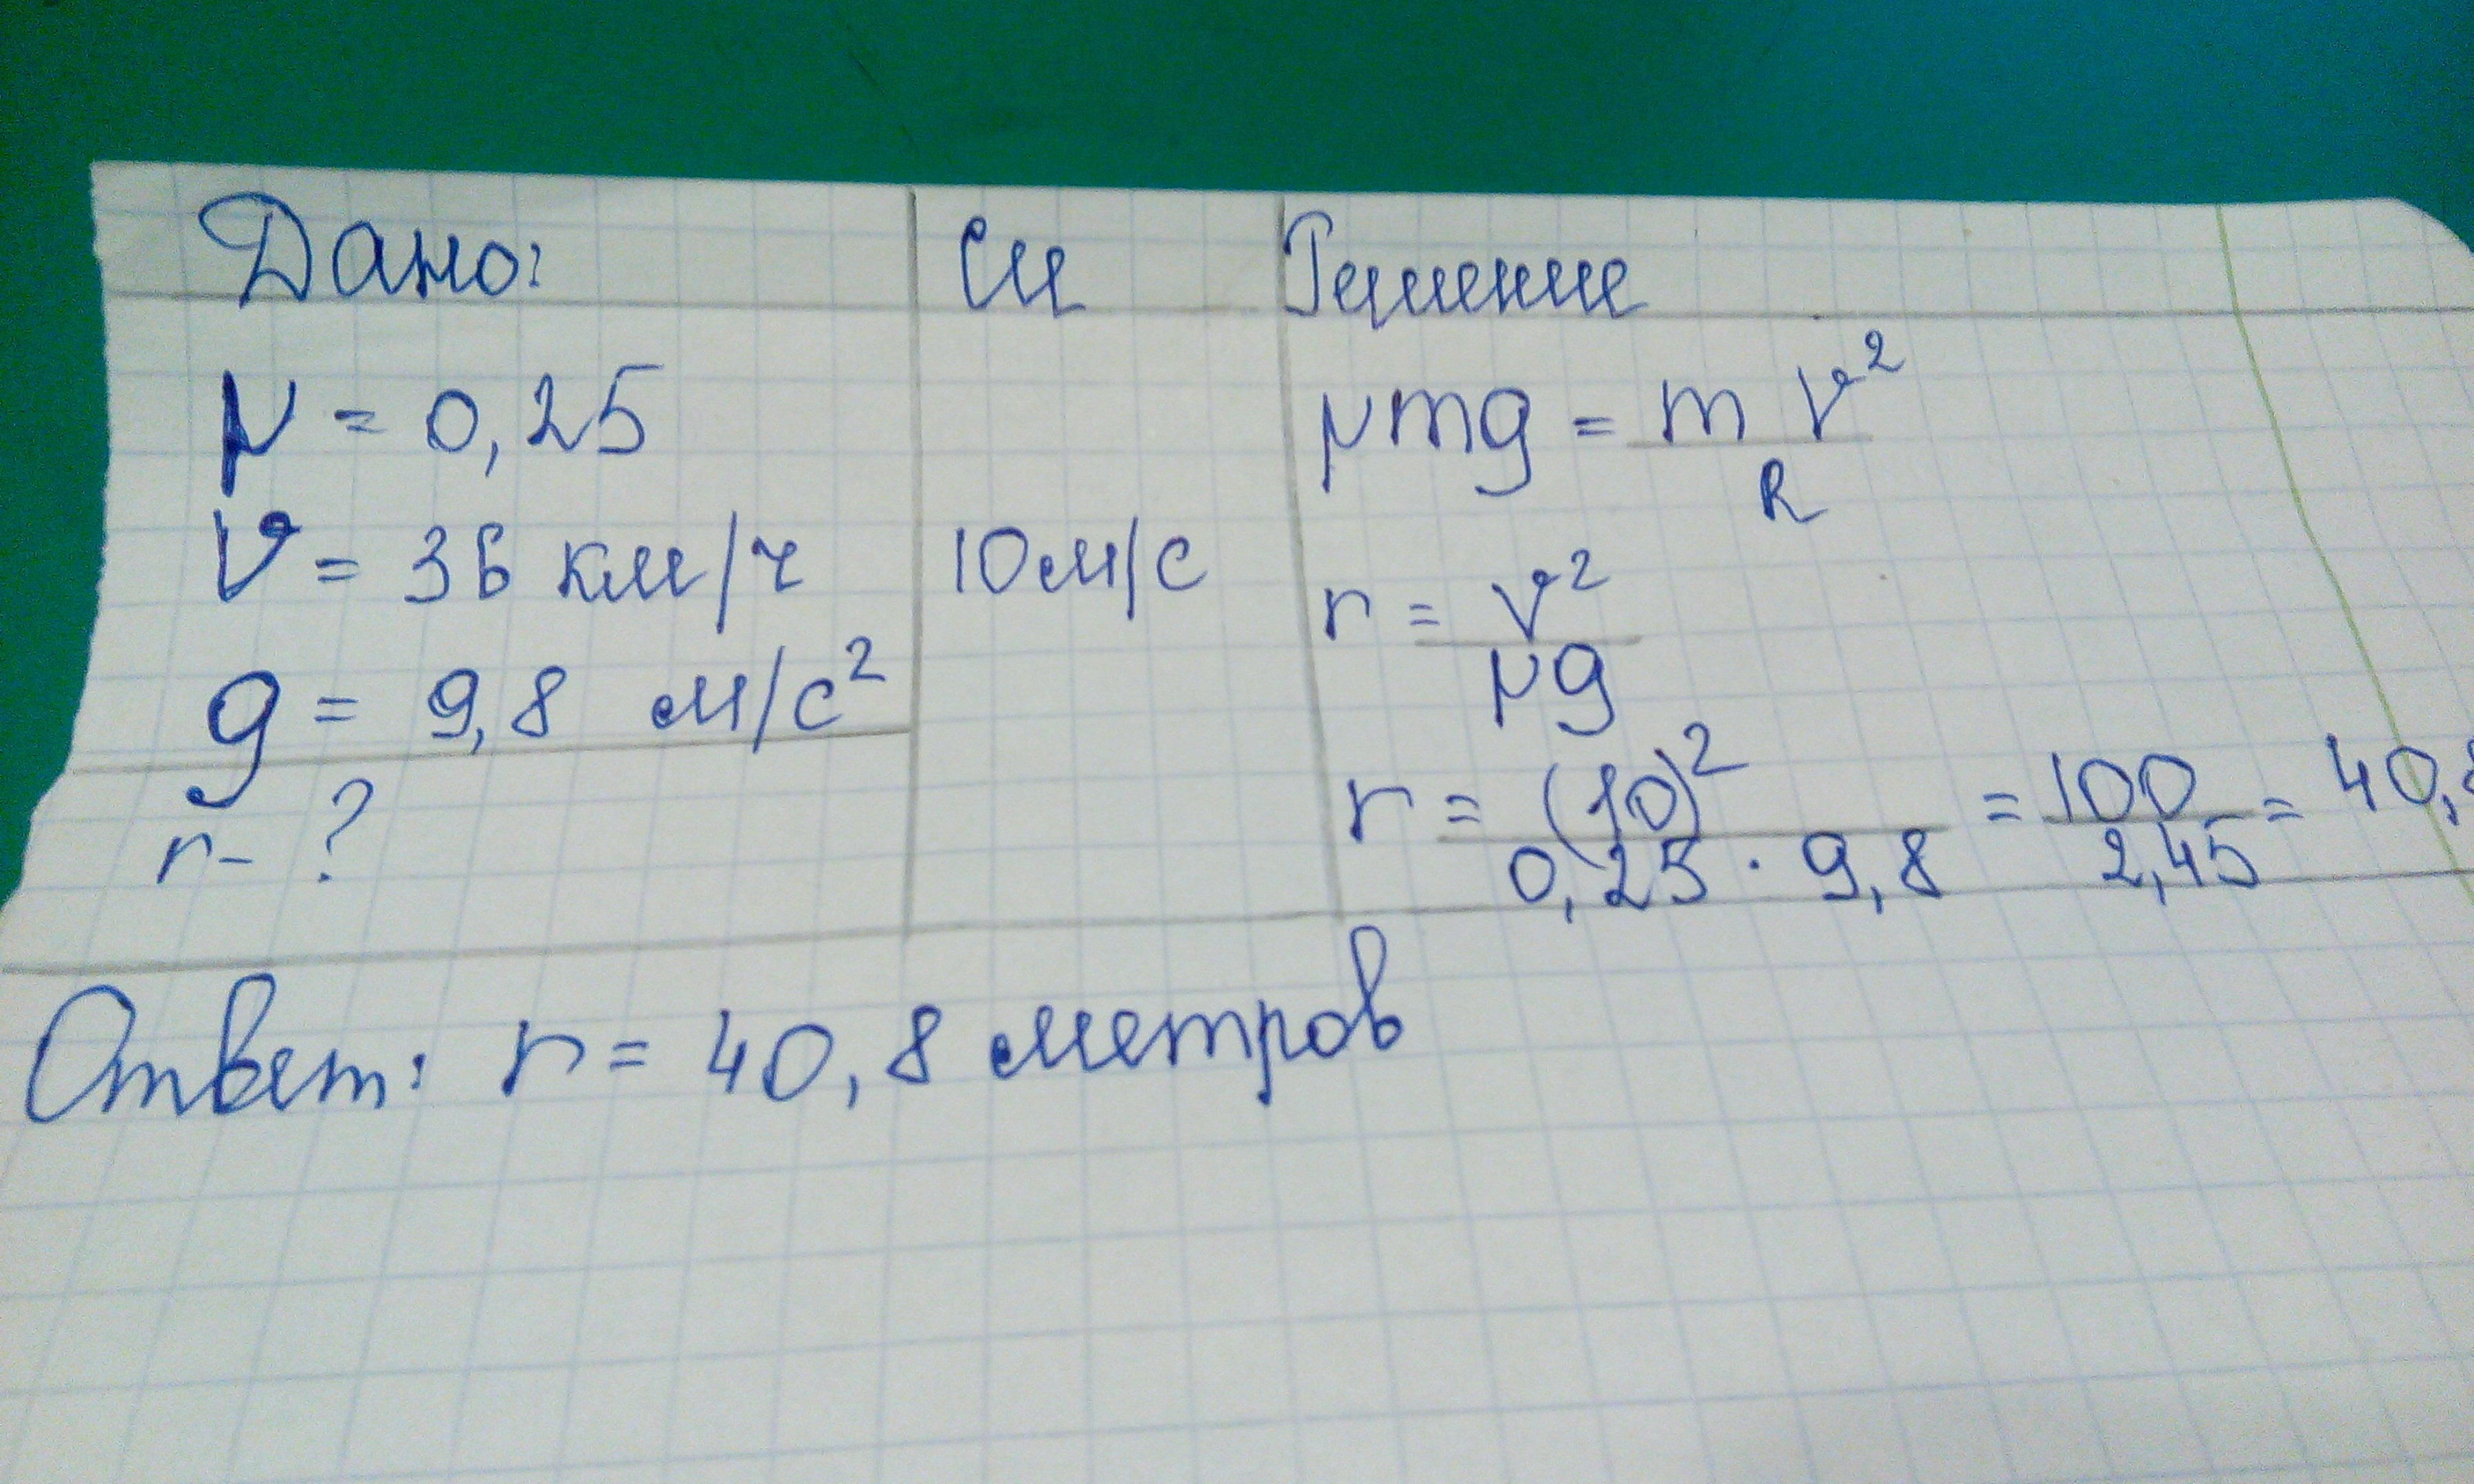 Дано:
μ = 0,25
v = 36 км/ч
g = 9,8 м/с²
r - ?
Си
10м/с
Решение
μmg = m v² / R
r = v² / μg
r = (10)² / 0,25 · 9,8 = 100 / 2,45 = 40,8
Ответ: r = 40,8 метров